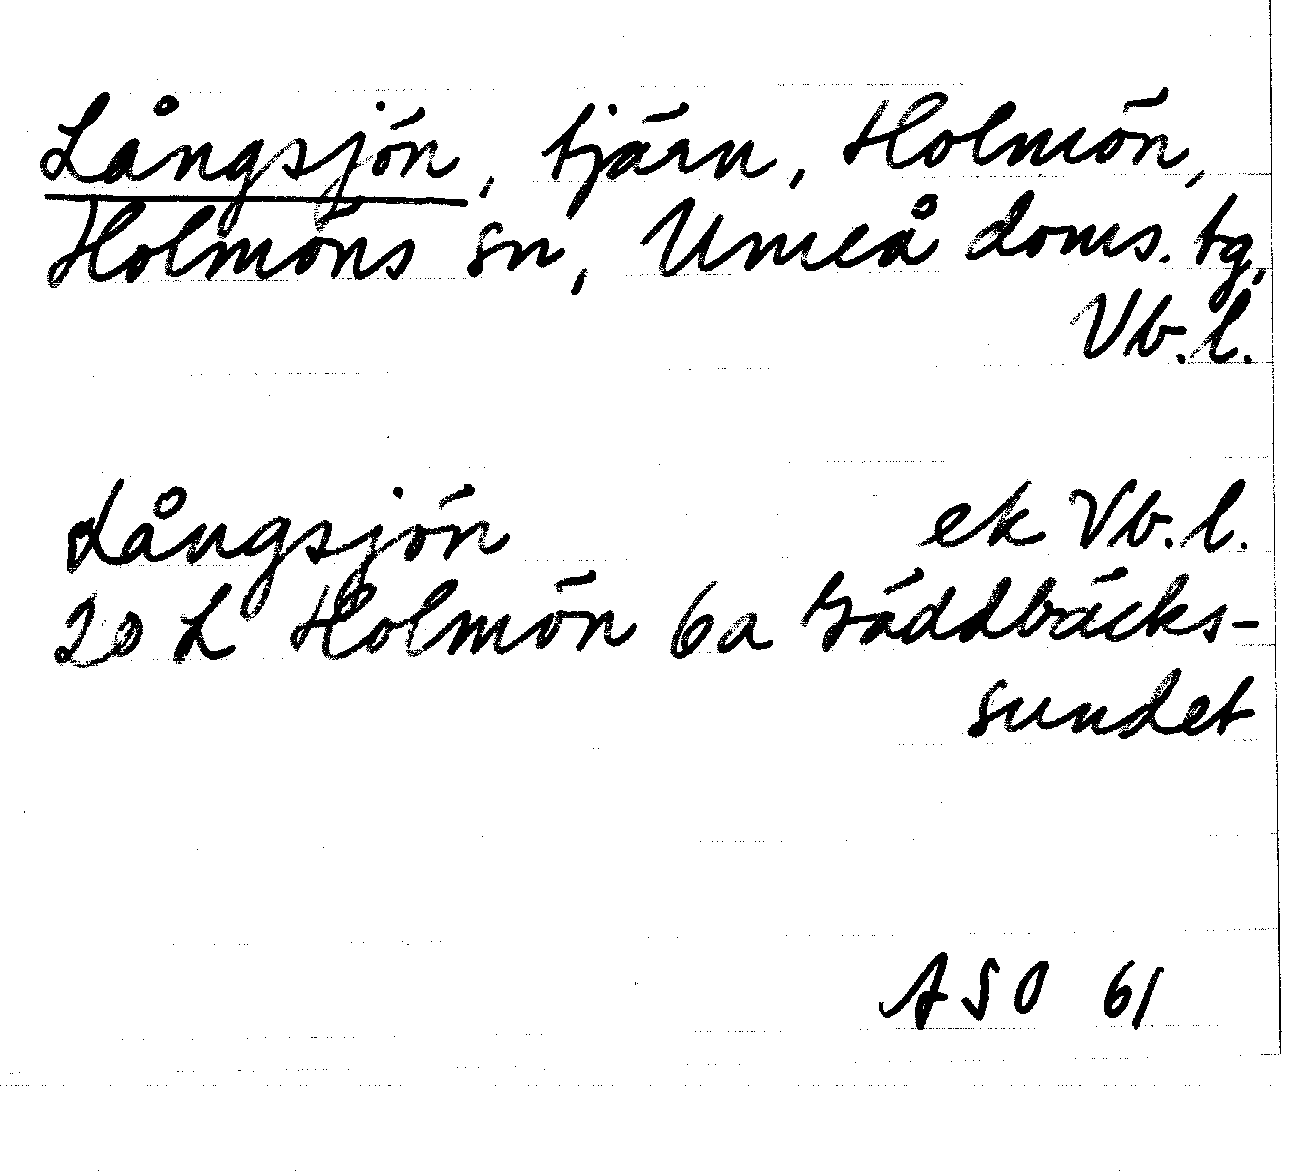 Långsjön, tjärn, Holmön,
Holmöns sn, Umeå doms. tg,
Vb.l.
Långsjön ek Vb.l.
20 L Holmön 6a Gäddbäcks-
sundet
ASO 61